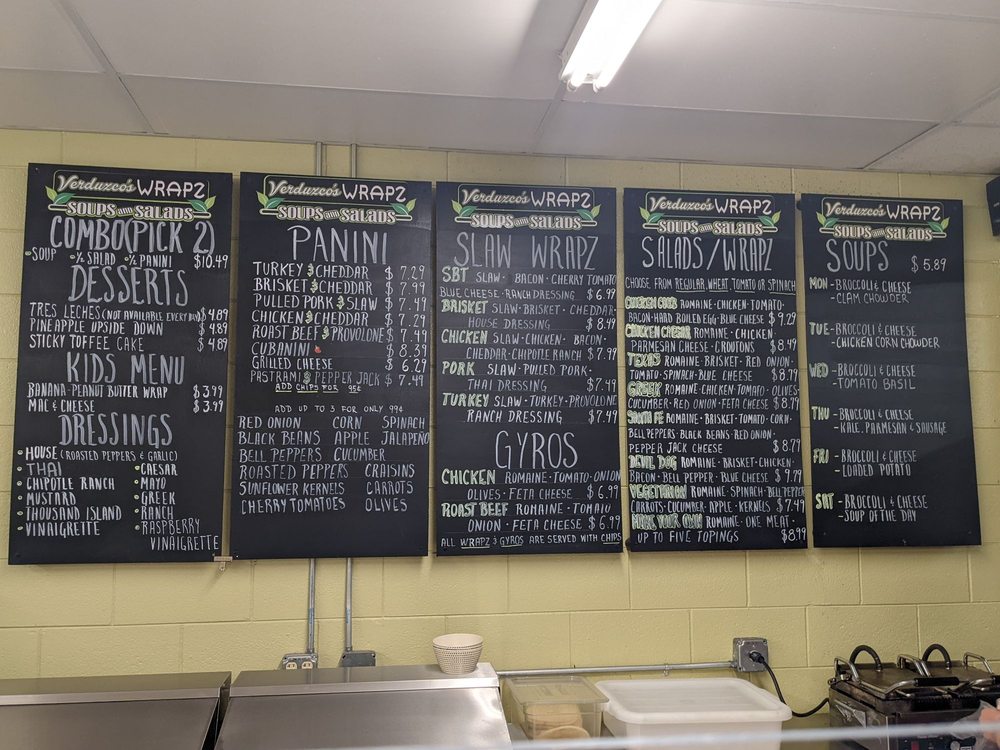 Verduzco's WRAPZ
SOUPS AND SALADS
COMBO (PICK 2)
SOUP ½ SALAD ½ PANINI $10.49
DESSERTS
TRES LECHES (NOT AVAILABLE EVERY DAY) $4.89
PINEAPPLE UPSIDE DOWN $4.89
STICKY TOFFEE CAKE $4.89
KIDS MENU
BANANA-PEANUT BUTTER WRAP $3.99
MAC & CHEESE $3.99
DRESSINGS
HOUSE (ROASTED PEPPERS & GARLIC)
THAI
CHIPOTLE RANCH
MUSTARD
THOUSAND ISLAND
VINAIGRETTE
CAESAR
MAYO
GREEK
RANCH
RASPBERRY
VINAIGRETTE
Verduzco's WRAPZ
SOUPS AND SALADS
PANINI
TURKEY & CHEDDAR $7.29
BRISKET & CHEDDAR $7.99
PULLED PORK & SLAW $7.49
CHICKEN & CHEDDAR $7.29
ROAST BEEF & PROVOLONE $7.49
CUBANINI $8.39
GRILLED CHEESE $6.29
PASTRAMI & PEPPER JACK $7.49
ADD CHIPS FOR 95¢
ADD UP TO 3 FOR ONLY 99¢
RED ONION CORN SPINACH
BLACK BEANS APPLE JALAPEÑO
BELL PEPPERS CUCUMBER
ROASTED PEPPERS CRAISINS
SUNFLOWER KERNELS CARROTS
CHERRY TOMATOES OLIVES
Verduzco's WRAPZ
SOUPS AND SALADS
SLAW WRAPZ
SBT SLAW · BACON · CHERRY TOMATO
BLUE CHEESE · RANCH DRESSING $6.99
BRISKET SLAW · BRISKET · CHEDDAR ·
HOUSE DRESSING $8.49
CHICKEN SLAW · CHICKEN · BACON ·
CHEDDAR · CHIPOTLE RANCH $7.99
PORK SLAW · PULLED PORK ·
THAI DRESSING $7.49
TURKEY SLAW · TURKEY · PROVOLONE
RANCH DRESSING $7.49
GYROS
CHICKEN ROMAINE · TOMATO · ONION
OLIVES · FETA CHEESE $6.99
ROAST BEEF ROMAINE · TOMATO
ONION · FETA CHEESE $6.99
ALL WRAPZ & GYROS ARE SERVED WITH CHIPS
Verduzco's WRAPZ
SOUPS AND SALADS
SALADS/WRAPZ
CHOOSE FROM REGULAR, WHEAT, TOMATO OR SPINACH
CHICKEN COBB ROMAINE · CHICKEN · TOMATO ·
BACON · HARD BOILED EGG · BLUE CHEESE $9.29
CHICKEN CAESAR ROMAINE · CHICKEN ·
PARMESAN CHEESE · CROUTONS $8.49
TEXAS ROMAINE · BRISKET · RED ONION ·
TOMATO · SPINACH · BLUE CHEESE $8.79
GREEK ROMAINE · CHICKEN · TOMATO · OLIVES
CUCUMBER · RED ONION · FETA CHEESE $8.79
SANTA FE ROMAINE · BRISKET · TOMATO · CORN ·
BELL PEPPERS · BLACK BEANS · RED ONION ·
PEPPER JACK CHEESE $8.79
DEVIL DOG ROMAINE · BRISKET · CHICKEN ·
BACON · BELL PEPPER · BLUE CHEESE $9.79
VEGETARIAN ROMAINE · SPINACH · BELL PEPPER
CARROTS · CUCUMBER · APPLE · KERNELS $7.49
MAKE YOUR OWN ROMAINE · ONE MEAT ·
UP TO FIVE TOPINGS $8.99
Verduzco's WRAPZ
SOUPS AND SALADS
SOUPS $5.89
MON - BROCCOLI & CHEESE
- CLAM CHOWDER
TUE - BROCCOLI & CHEESE
- CHICKEN CORN CHOWDER
WED - BROCCOLI & CHEESE
- TOMATO BASIL
THU - BROCCOLI & CHEESE
- KALE, PARMESAN & SAUSAGE
FRI - BROCCOLI & CHEESE
- LOADED POTATO
SAT - BROCCOLI & CHEESE
- SOUP OF THE DAY